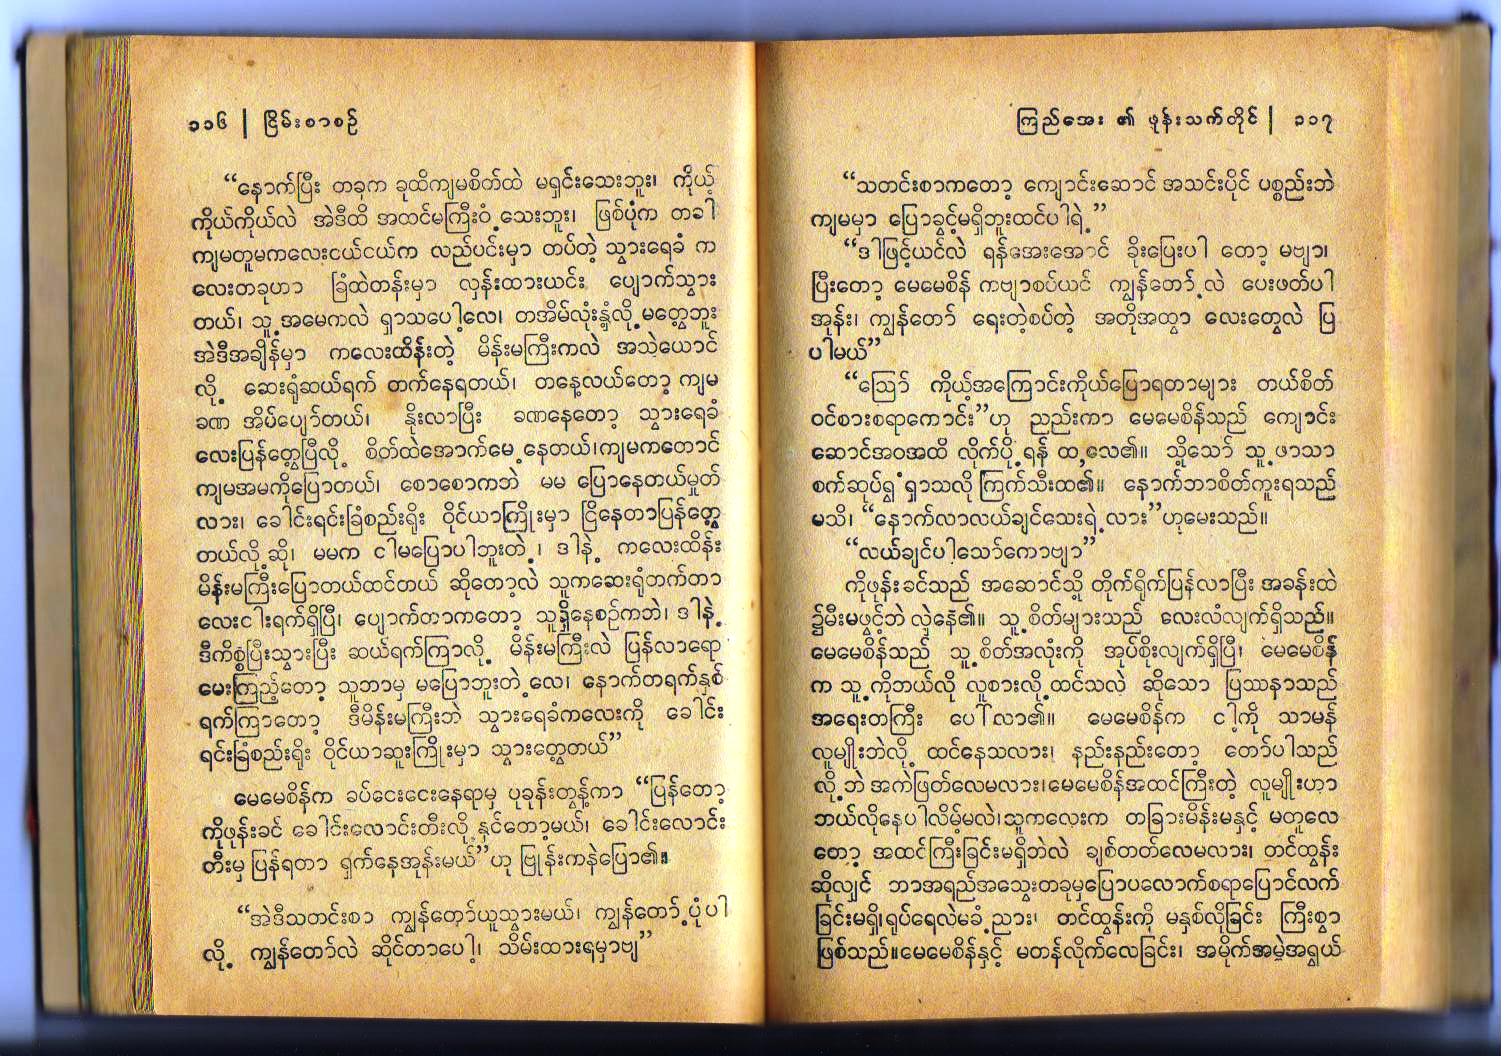 ၁၁၆ | ငြိမ်းစာစဉ်
“နောက်ပြီး တခုက ခုထိကျမစိတ်ထဲ မရှင်းသေးဘူး၊ ကိုယ့်
ကိုယ်ကိုယ်လဲ အဲဒီထိ အထင်မကြီးဝံ့သေးဘူး၊ ဖြစ်ပုံက တခါ
ကျမတူမကလေးငယ်ငယ်က လည်ပင်းမှာ တပ်တဲ့ သွားရေခံ က
လေးတခုဟာ ခြံထဲတန်းမှာ လှန်းထားယင်း ပျောက်သွား
တယ်၊ သူ့အမေကလဲ ရှာသပေါ့လေ၊ တအိမ်လုံးနှံ့လို့မတွေ့ဘူး
အဲဒီအချိန်မှာ ကလေးထိန်းတဲ့ မိန်းမကြီးကလဲ အသဲယောင်
လို့ ဆေးရုံဆယ်ရက် တက်နေရတယ်၊ တနေ့လယ်တော့ ကျမ
ခဏ အိပ်ပျော်တယ်၊ နိုးလာပြီး ခဏနေတော့ သွားရေခံ
လေးပြန်တွေ့ပြီလို့ စိတ်ထဲအောက်မေ့နေတယ်၊ကျမကတောင်
ကျမအမကိုပြောတယ်၊ စောစောကဘဲ မမ ပြောနေတယ်မှုတ်
လား၊ ခေါင်းရင်းခြံစည်းရိုး ဝိုင်ယာကြိုးမှာ ငြိနေတာပြန်တွေ့
တယ်လို့ဆို၊ မမက ငါမပြောပါဘူးတဲ့၊ ဒါနဲ့ ကလေးထိန်း
မိန်းမကြီးပြောတယ်ထင်တယ် ဆိုတော့လဲ သူကဆေးရုံတက်တာ
လေးငါးရက်ရှိပြီ၊ ပျောက်တာကတော့ သူရှိနေစဉ်ကဘဲ၊ ဒါနဲ့
ဒီကိစ္စပြီးသွားပြီး ဆယ်ရက်ကြာလို့ မိန်းမကြီးလဲ ပြန်လာရော
မေးကြည့်တော့ သူဘာမှ မပြောဘူးတဲ့လေ၊ နောက်တရက်နှစ်
ရက်ကြာတော့ ဒီမိန်းမကြီးဘဲ သွားရေခံကလေးကို ခေါင်း
ရင်းခြံစည်းရိုး ဝိုင်ယာဆူးကြိုးမှာ သွားတွေ့တယ်”
မေမေစိန်က ခပ်ငေးငေးနေရာမှ ပုခုန်းတွန့်ကာ “ပြန်တော့
ကိုဖုန်းခင် ခေါင်းလောင်းတီးလို့နှင်တော့မယ်၊ ခေါင်းလောင်း
တီးမှ ပြန်ရတာ ရှက်နေအုန်းမယ်”ဟု ဗြုန်းကနဲပြော၏။
“အဲဒီသတင်းစာ ကျွန်တော်ယူသွားမယ်၊ ကျွန်တော့်ပုံပါ
လို့ ကျွန်တော်လဲ ဆိုင်တာပေါ့၊ သိမ်းထားရမှာဗျ”
ကြည်အေး ၏ ဖုန်းသက်တိုင် | ၁၁၇
“သတင်းစာကတော့ ကျောင်းဆောင် အသင်းပိုင် ပစ္စည်းဘဲ
ကျမမှာ ပြောခွင့်မရှိဘူးထင်ပါရဲ့”
“ဒါဖြင့်ယင်လဲ ရန်အေးအောင် ခိုးပြေးပါ တော့ မဗျာ၊
ပြီးတော့ မေမေစိန် ကဗျာစပ်ယင် ကျွန်တော့်လဲ ပေးဖတ်ပါ
အုန်း၊ ကျွန်တော် ရေးတဲ့စပ်တဲ့ အတိုအထွာ လေးတွေလဲ ပြ
ပါမယ်”
“ဪ ကိုယ့်အကြောင်းကိုယ်ပြောရတာများ တယ်စိတ်
ဝင်စားစရာကောင်း”ဟု ညည်းကာ မေမေစိန်သည် ကျောင်း
ဆောင်အဝအထိ လိုက်ပို့ရန် ထ,လေ၏။ သို့သော် သူ့ဖာသာ
စက်ဆုပ်ရွံရှာသလို ကြက်သီးထ၏။ နောက်ဘာစိတ်ကူးရသည်
မသိ၊ “နောက်လာလယ်ချင်သေးရဲ့လား”ဟုမေးသည်။
“လယ်ချင်ပါသော်ကောဗျာ”
ကိုဖုန်းခင်သည် အဆောင်သို့ တိုက်ရိုက်ပြန်လာပြီး အခန်းထဲ
၌မီးမဖွင့်ဘဲ လှဲနေ၏။ သူ့စိတ်များသည် လေးလံလျက်ရှိသည်။
မေမေစိန်သည် သူ့စိတ်အလုံးကို အုပ်စိုးလျက်ရှိပြီ၊ မေမေစိန်
က သူ့ကိုဘယ်လို လူစားလို့ထင်သလဲ ဆိုသော ပြဿနာသည်
အရေးတကြီး ပေါ်လာ၏။ မေမေစိန်က ငါ့ကို သာမန်
လူမျိုးဘဲလို့ ထင်နေသလား၊ နည်းနည်းတော့ တော်ပါသည်
လို့ဘဲ အကဲဖြတ်လေမလား၊မေမေစိန်အထင်ကြီးတဲ့ လူမျိုးဟာ
ဘယ်လိုနေပါလိမ့်မလဲ၊သူကလေးက တခြားမိန်းမနှင့် မတူလေ
တော့ အထင်ကြီးခြင်းမရှိဘဲလဲ ချစ်တတ်လေမလား၊ တင်ထွန်း
ဆိုလျှင် ဘာအရည်အသွေးတခုမှပြောပလောက်စရာပြောင်လက်
ခြင်းမရှိ၊ရုပ်ရေလဲမခံ့ညား၊ တင်ထွန်းကို မနှစ်လိုခြင်း ကြီးစွာ
ဖြစ်သည်။မေမေစိန်နှင့် မတန်လိုက်လေခြင်း၊ အမိုက်အမဲအရွယ်